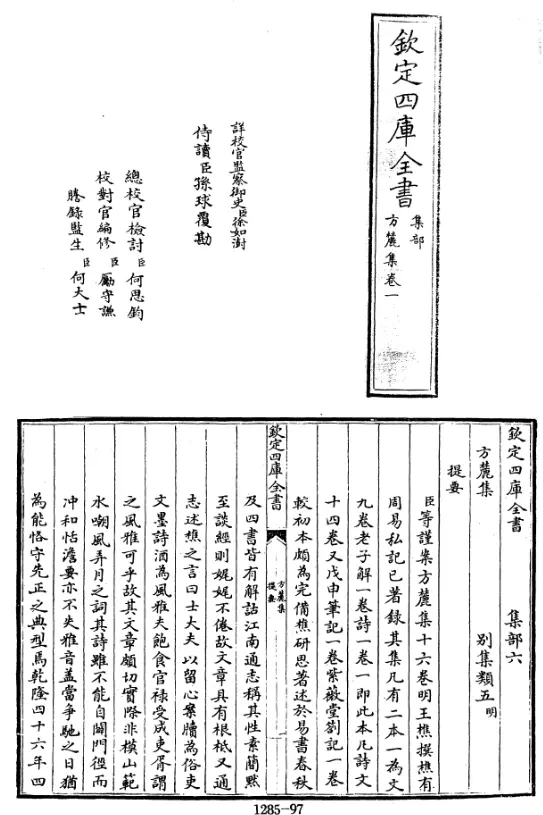 欽定四庫全書
集部
方麓集卷一
詳校官監察御史臣徐如澍
侍讀臣孫球覆勘
總校官檢討臣何思鈞
校對官編修臣勵守謙
謄錄監生臣何大士
欽定四庫全書 集部六
方麓集 別集類五明
提要
臣等謹集方麓集十六卷明王樵撰樵有
周易私記已著録其集凡有二本一為文
九卷老子解一卷詩一卷一即此本凡詩文
十四卷又戊申筆記一卷紫薇堂劄記一卷
較初本頗為完備樵研思著述於易書春秋
欽定四庫全書
方麓集
提要
及四書皆有解詁江南通志稱其性素簡黙
至談經則娓娓不倦故文章具有根柢又通
志述樵之言曰士大夫以留心案牘為俗吏
文墨詩酒為風雅夫飽食官祿受成吏胥謂
之風雅可乎故其文章頗切實際非模山範
水嘲風弄月之詞其詩雖不能自闢門徑而
冲和恬澹要亦不失雅音蓋當争馳之日猶
為能恪守先正之典型焉乾隆四十六年四
1285-97